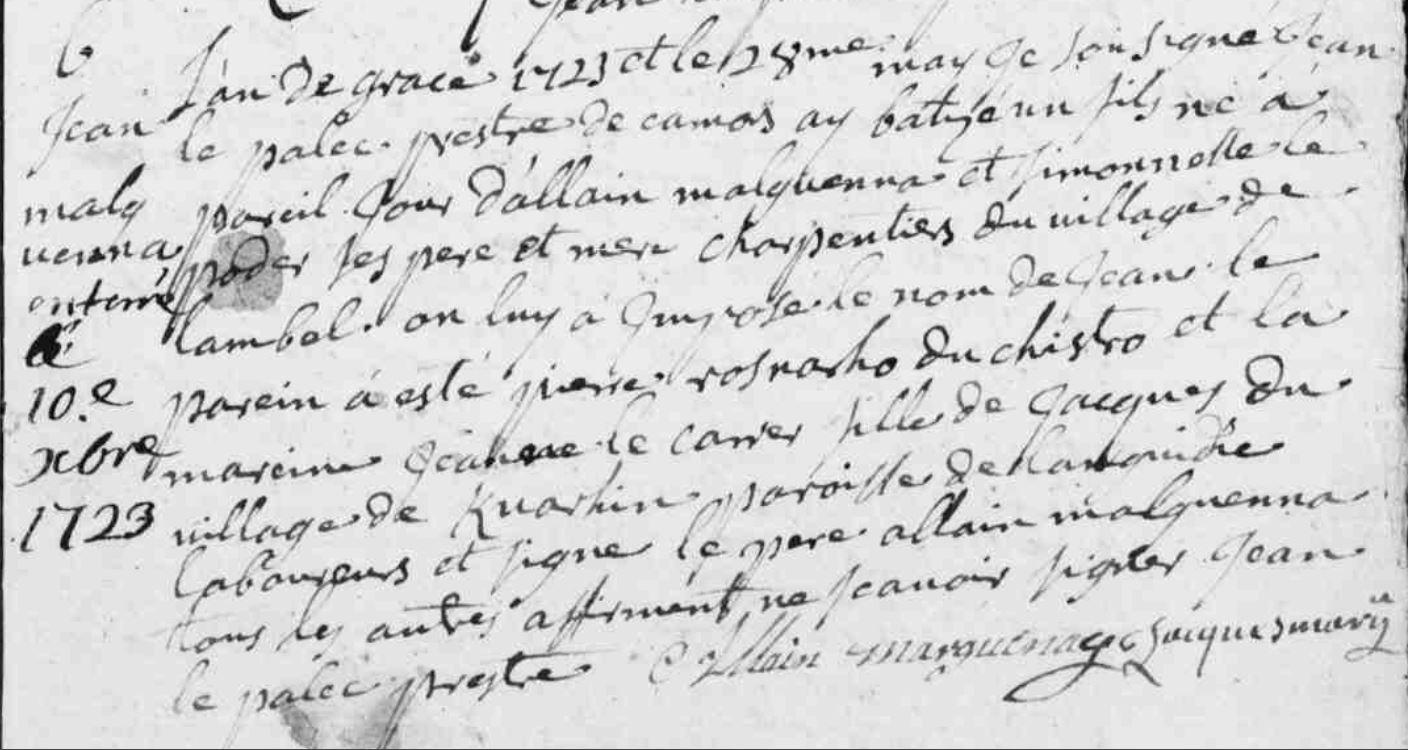 b
Jean
malg
uenna
enterré
le
10.e
xbre
1723
Lan de grace 1723 et le 28me may Je sousigné Jean
le palec prestre de camors ay batizé un fils né a
pareil Jour d'allain malguenna et simonnelle le
poder ses pere et mere charpentiers du village de
lambel on luy a Jmposé le nom de Jean le
parein a esté pierre rosnarho du chistro et la
mareine Jeanne le carrer fille de Jacques du
village de Kuarhin paroisse de languidic
laboureurs et signe le pere allain malguenna
tous les autres affirment ne scauoir signer Jean
le palec prestre Allain marguena Jacques